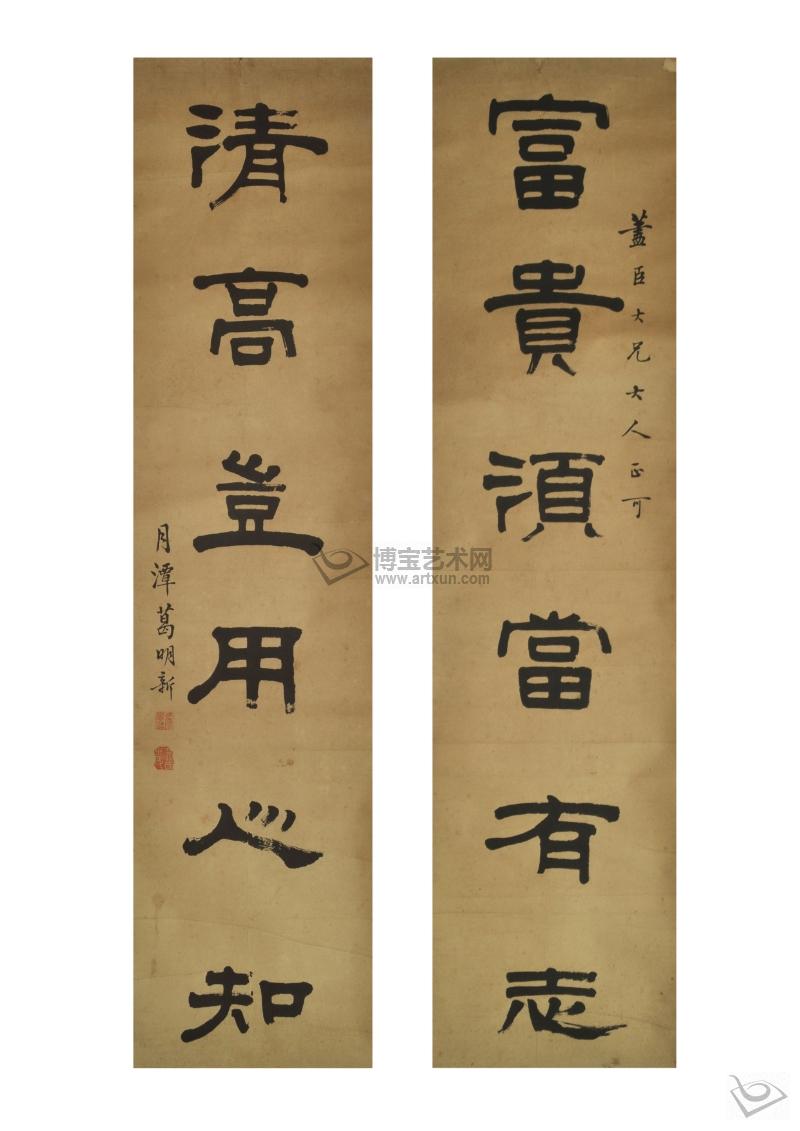 富貴須當有志
藎臣大兄大人正可
清高豈用心知
月潭葛明新
博宝艺术网
www.artxun.com